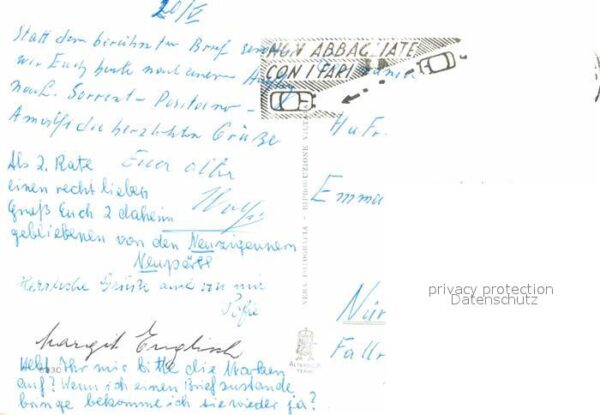 20/V
Statt dem berühmten Brief senden
wir Euch heute nach einem Ausflug
nach Sorrent - Positano -
Amalfi die herzlichsten Grüße
Euer alter
Wolf
Als 2. Rate
einen recht lieben
Gruß Euch 2 daheim
gebliebenen von den Neuzigeunern
Herzliche Grüße auch von mir
Margit Englisch
Hebt Ihr mir bitte die Marken
auf? Wenn ich einen Brief zustande
bringe bekomme ich sie wieder ja?
NON ABBAGLIATE
CON I FARI
VERA FOTOGRAFIA - RIPRODUZIONE VIETATA
HuFr.
Emma
Nür
privacy protection
Datenschutz